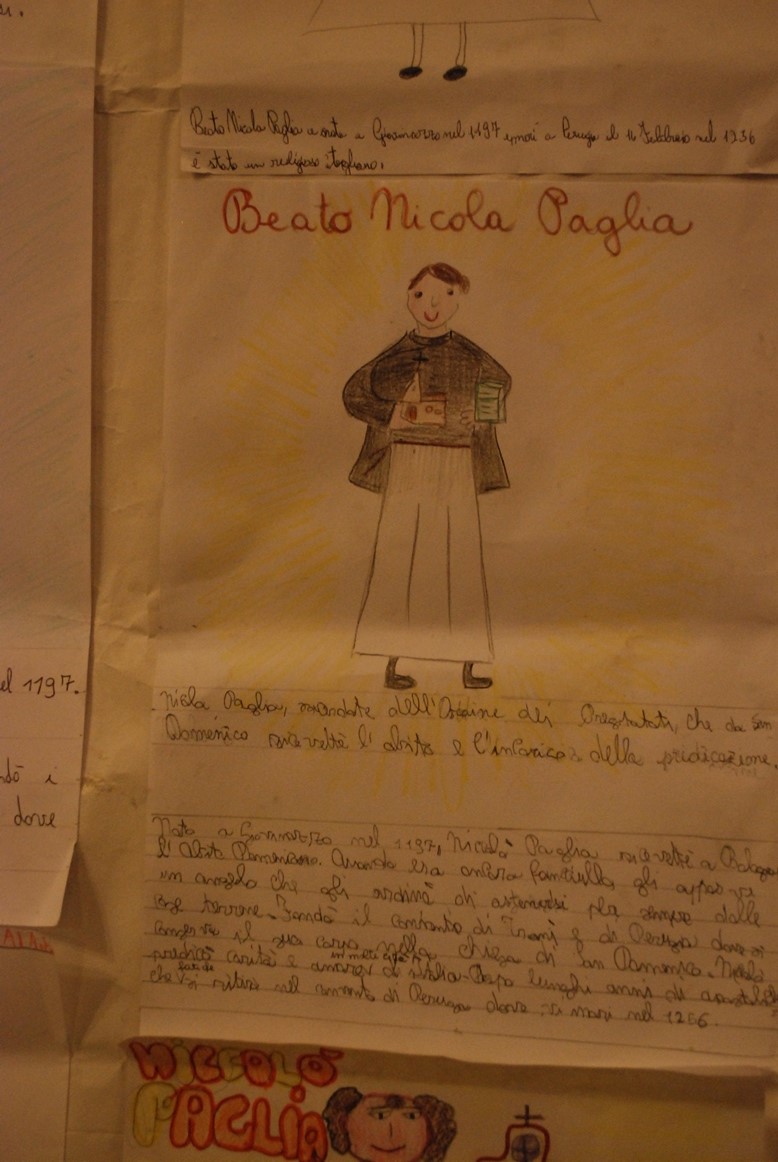 Beato Nicola Paglia nato a Giovinazzo nel 1197 e morì a Perugia il 16 Febbraio nel 1256
è stato un religioso italiano.
Beato Nicola Paglia
el 1197.
Nicola Paglia, dell'Ordine dei che da San
Domenico ricevette l'abito e l'incarico della predicazione.
dò i
dove
Nato a Giovinazzo nel 1197, Nicola Paglia ricevette a Bologna
l'Abito Domenicano. Quando era ancora fanciullo gli apparve
un angelo che gli ordinò di astenersi per sempre dalle
cose terrene. Fondò il convento di Trani e di Perugia dove si
conserva il suo corpo nella chiesa di San Domenico. Nicola
predicò carità e amore in molte città d'italia. Dopo lunghi anni di apostolato
che si ritirò nel convento di Perugia dove vi morì nel 1256.
NICCOLÒ
PAGLIA